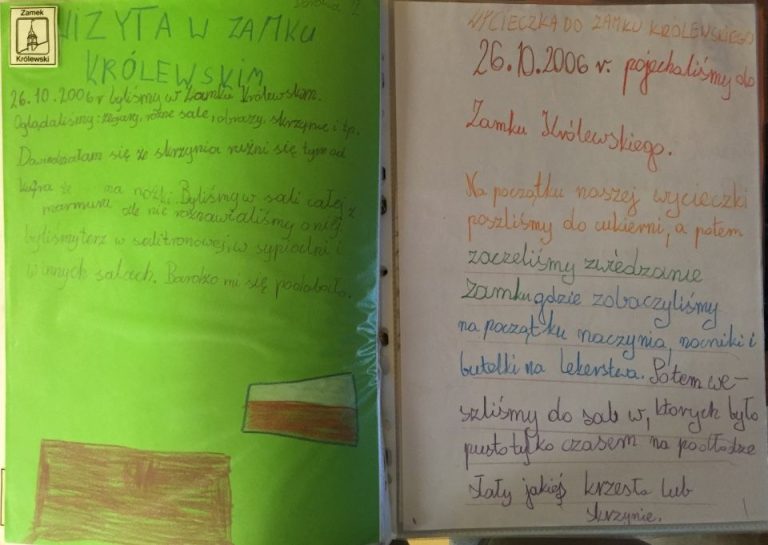 Zamek
Królewski
WIZYTA W ZAMKU
KRÓLEWSKIM
26.10.2006r byliśmy w Zamku Królewskim.
Oglądaliśmy: zegary, różne sale, obrazy, skrzynie i tp.
Dowiedziałam się że skrzynia rużni się tym od
kufra że ma nóżki. Byliśmy w sali całej z
marmuru ale nie rozmawialiśmy o niej
byliśmy terz w sali tronowej, w sypialni i
w innych salach. Bardzo mi się podobało.
WYCIECZKA DO ZAMKU KRÓLEWSKIEGO
26.10.2006 r. pojechaliśmy do
Zamku Królewskiego.
Na początku naszej wycieczki
poszliśmy do cukierni, a potem
zaczeliśmy zwiedzanie
Zamku gdzie zobaczyliśmy
na początku naczynia, nocniki i
butelki na lekerstwa. Potem we-
szliśmy do sal w, ktorych było
pusto tylko czasem na podłodze
stały jakieś krzesła lub
skrzynie.